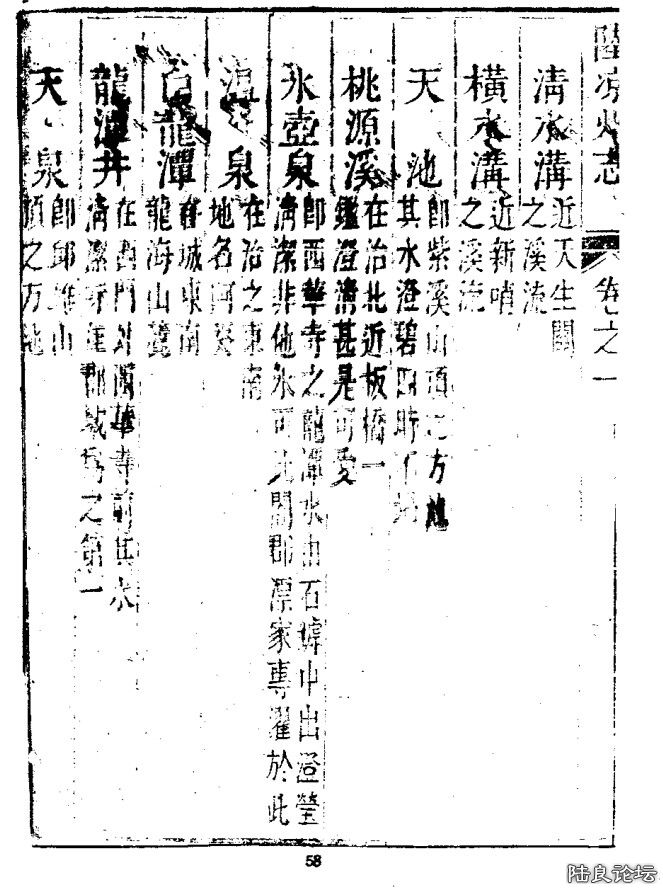 陸凉州志 卷之一
清水溝 近天生關
之溪流
橫水溝 近新哨
之溪流
天池 即紫溪山頂之方池
其水澄碧四時不
桃源溪 在治北近板橋一
鑑澄清甚是可愛
氷壺泉 即西華寺之龍潭水由石罅中出澄瑩
清潔非他氷可比闔郡漂家專濯於此
溫泉 在治之東南
地名
白龍潭 在城東南
龍海山麓
龍潭井 在西門外西華寺前其水
清潔 郡城 之第一
天 泉 即邱雄山
頂之方池
58
陆良论坛